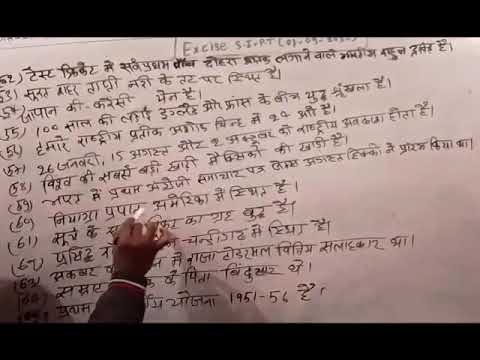 Excise S.I.PT
(52) टैस्ट क्रिकेट में सर्वप्रथम दोहरा शतक लगाने वाले भारतीय राहुल द्रविड़ है।
(53) सूरत शहर ताप्ती नदी के तट पर स्थित है।
(54) जापान की करेंसी येन है।
(55) 100 साल की लड़ाई इंग्लैंड और फ्रांस के बीच युद्ध श्रृंखला है।
(56) हमारे राष्ट्रीय प्रतीक अशोक चिन्ह में 24 और है।
(57) 26 जनवरी, 15 अगस्त और 2 अक्टूबर को राष्ट्रीय अवकाश होता है।
(58) विश्व की सबसे बड़ी खाड़ी मेक्सिको की खाड़ी है।
(59) भारत में प्रथम अंग्रेजी समाचार पत्र जेम्स अगस्टन हिक्की ने प्रारंभ किया था।
(60) नियाग्रा प्रपात अमेरिका में स्थित है।
(61) सूर्य के का ग्रह बुद्ध है।
प्रसिद्ध चन्डीगढ में स्थित है।
अकबर के में राजा टोडरमल वित्तिय सलाहकार था।
सम्राट के पिता बिंदुसार थे।
प्रथम योजना 1951-56 है।